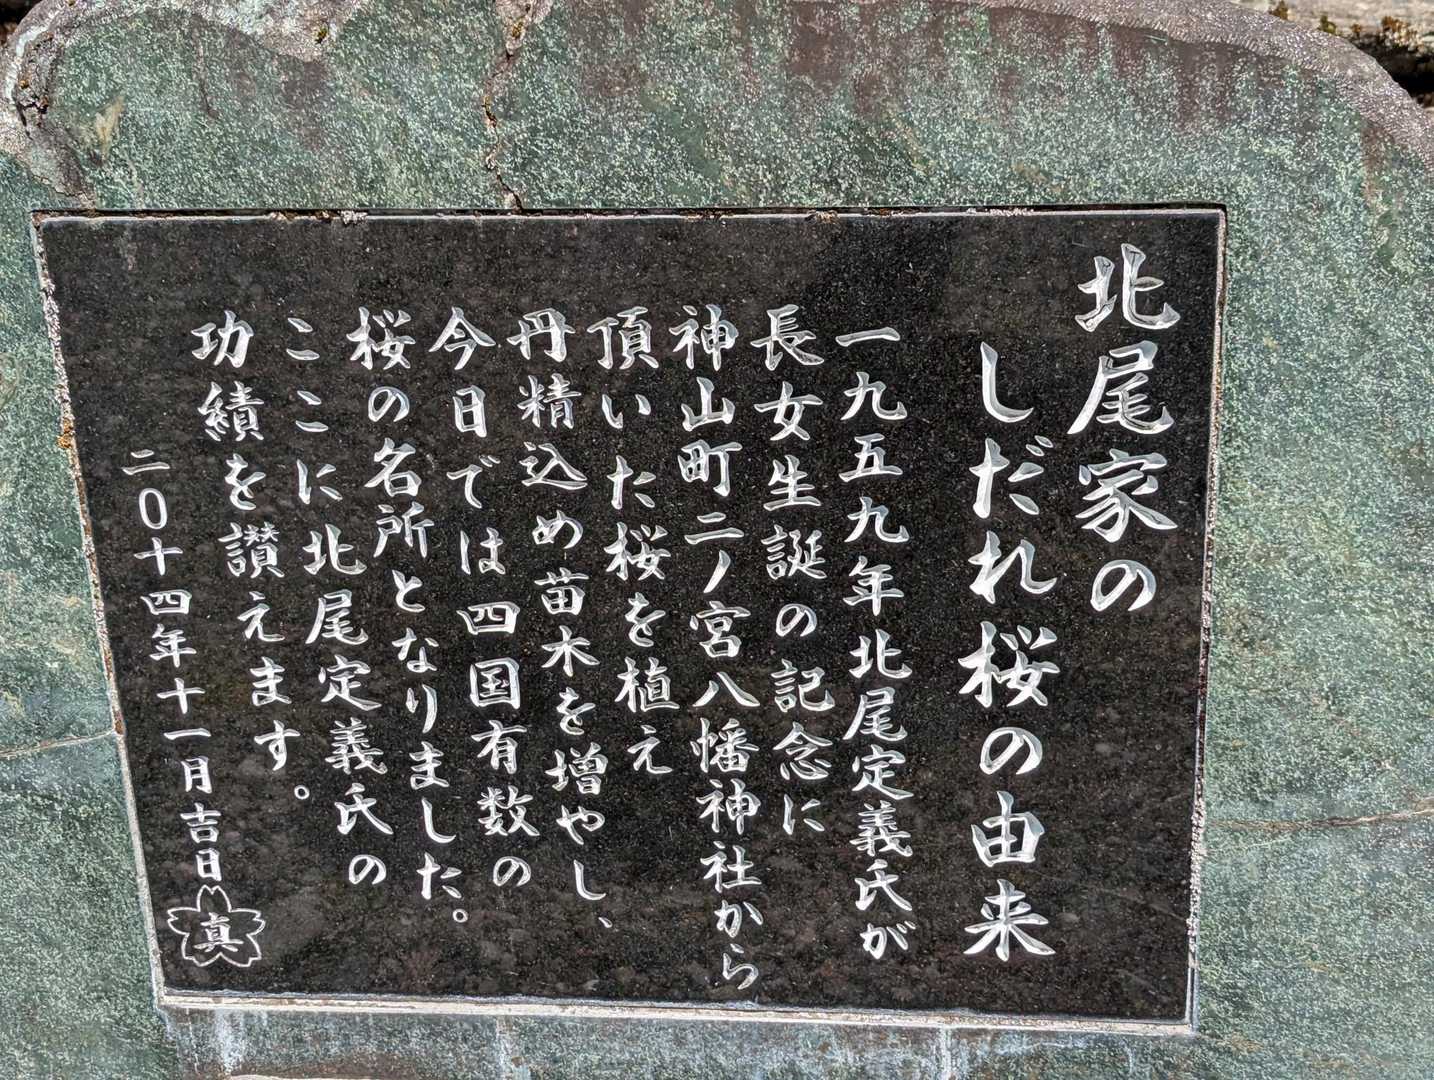 北尾家の
しだれ桜の由来
一九五九年北尾定義氏が
長女生誕の記念に
神山町二ノ宮八幡神社から
頂いた桜を植え
丹精込め苗木を増やし、
今日では四国有数の
桜の名所となりました。
ここに北尾定義氏の
功績を讃えます。
二〇十四年十一月吉日
真